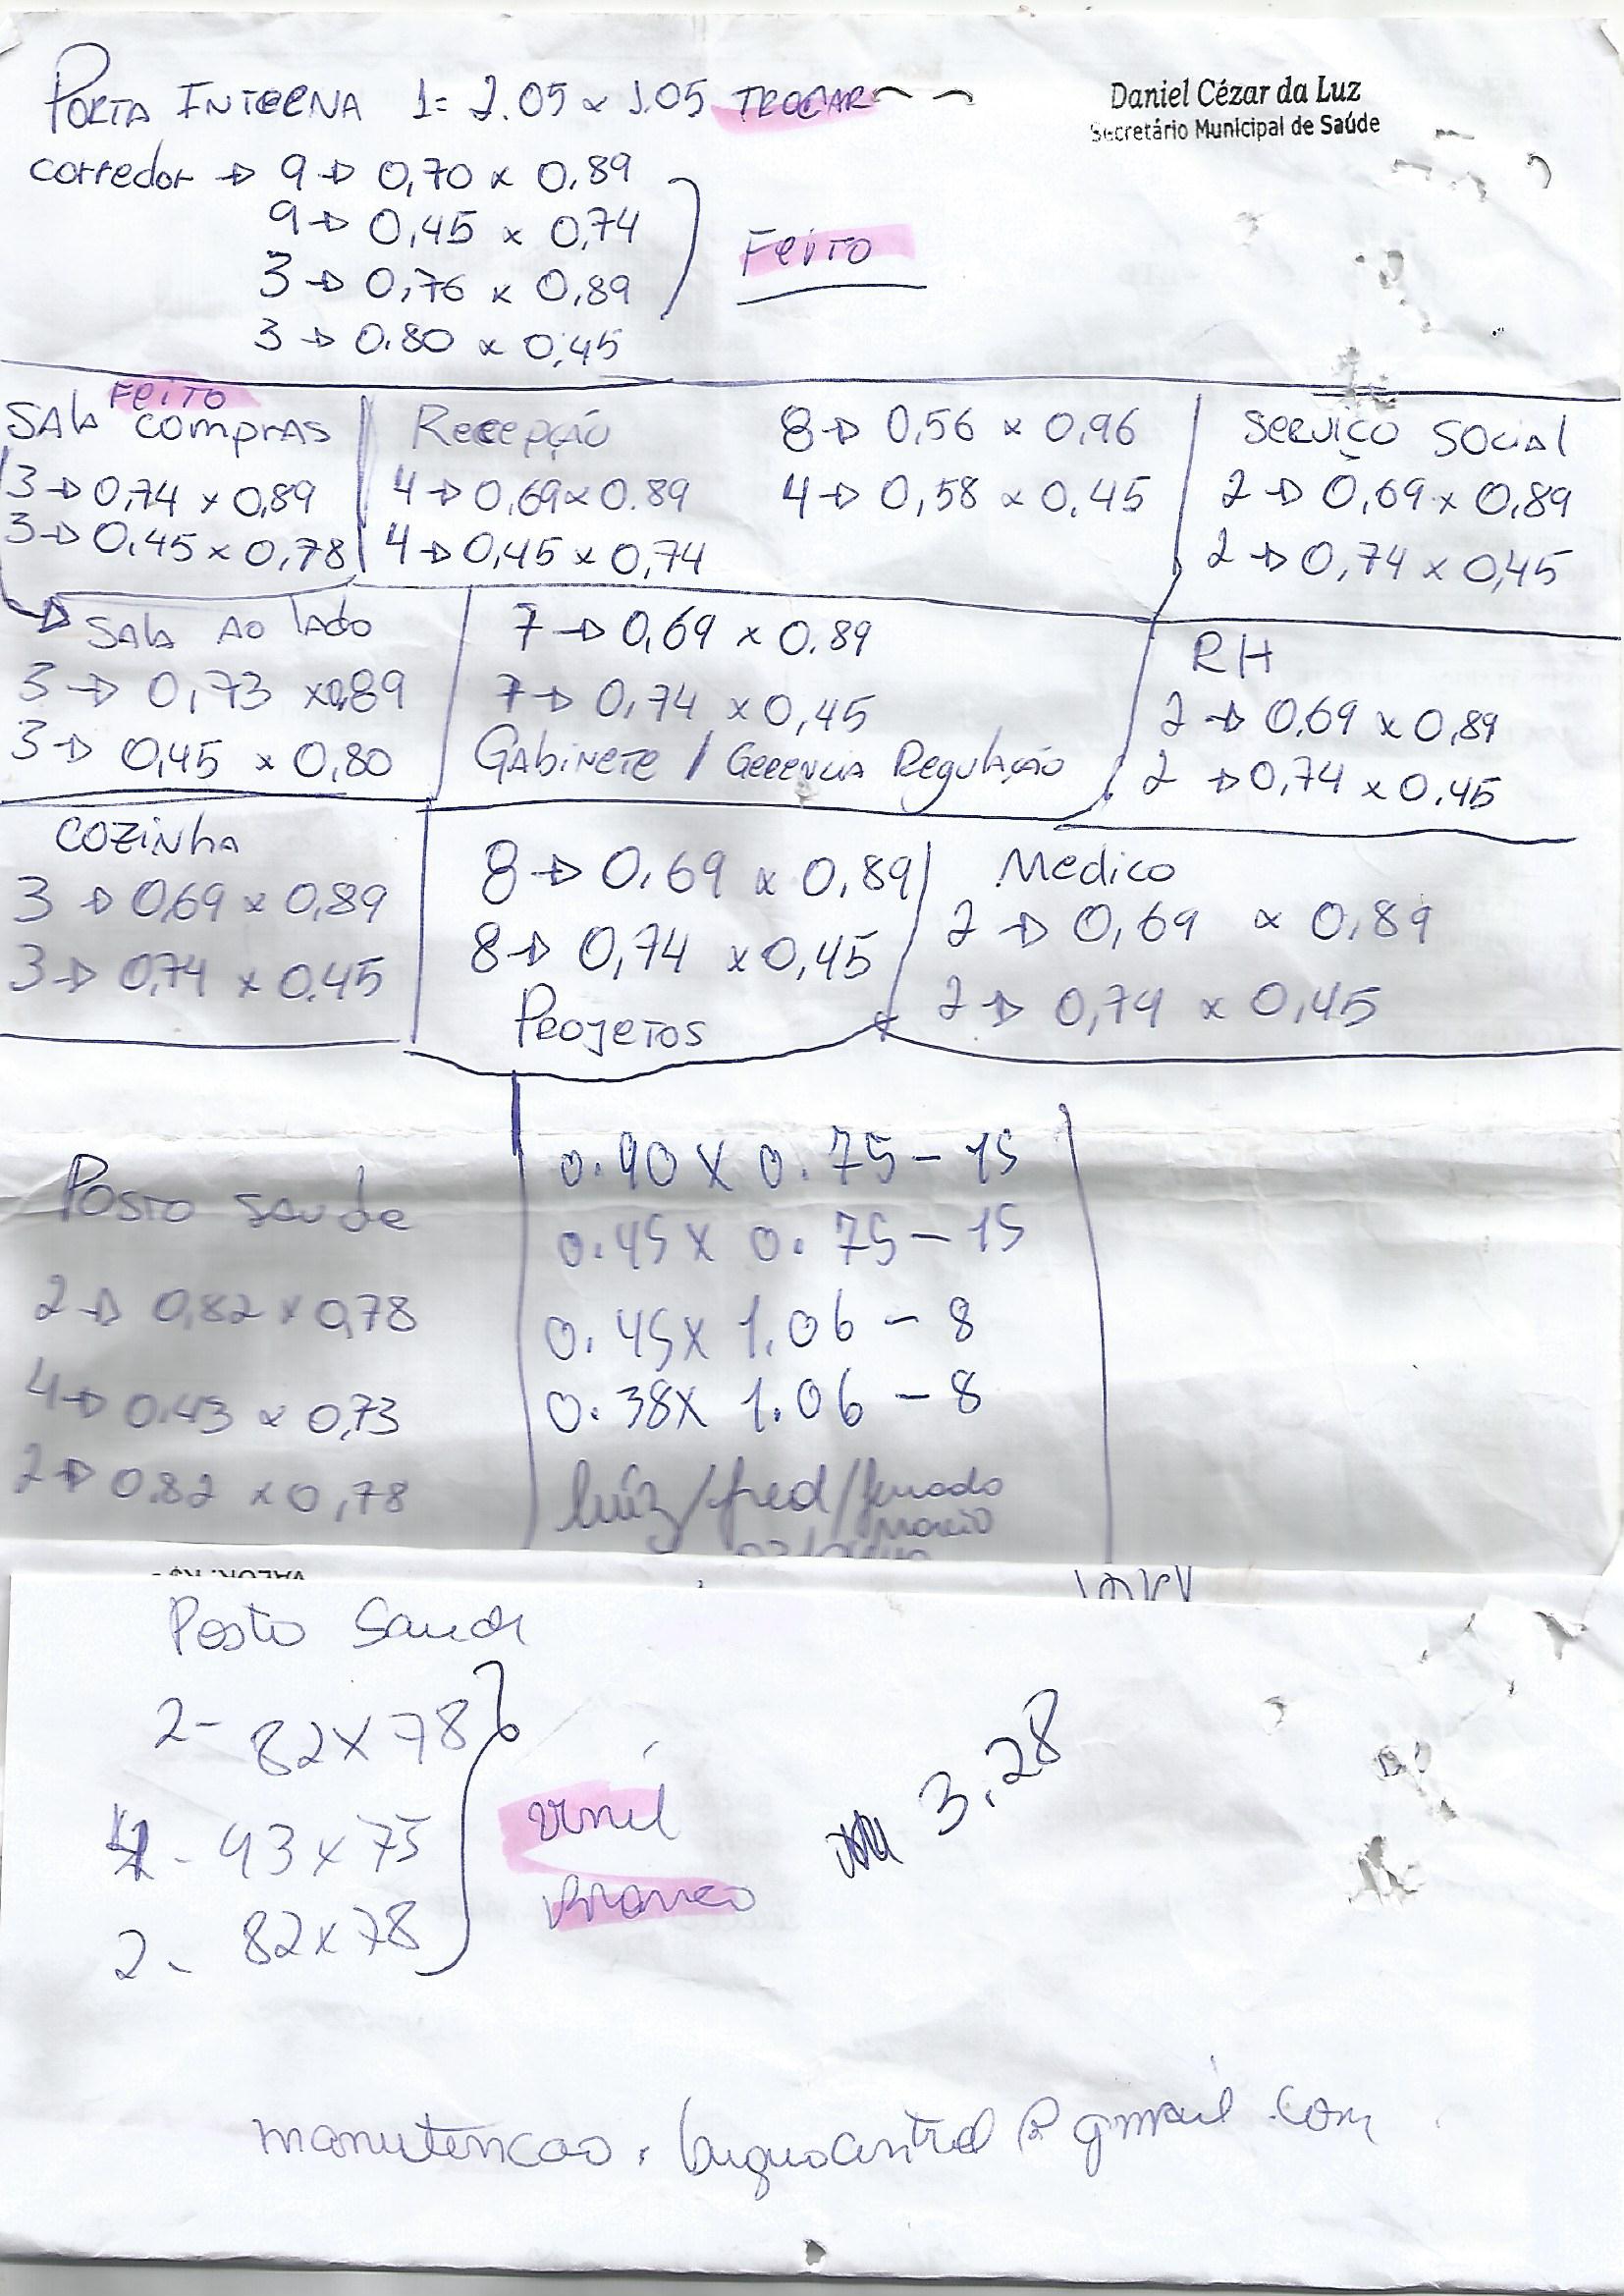 PORTA INTERNA 1= 2.05 x 1.05 TROCAR
Daniel Cézar da Luz
Secretário Municipal de Saúde
corredor → 9 → 0,70 x 0,89
9 → 0,45 x 0,74
3 → 0,76 x 0,89
3 → 0.80 x 0,45
FEITO
FEITO
SALA COMPRAS
3 → 0,74 x 0,89
3 → 0,45 x 0,78
Recepção
4 → 0,69 x 0.89
4 → 0,45 x 0,74
8 → 0,56 x 0,96
4 → 0,58 x 0,45
SERVIÇO SOCIAL
2 → 0,69 x 0,89
2 → 0,74 x 0,45
→ SALA AO LADO
3 → 0,73 x 0,89
3 → 0,45 x 0,80
7 → 0,69 x 0.89
7 → 0,74 x 0,45
GABINETE / GERENCIA REGULAÇÃO
RH
2 → 0,69 x 0,89
2 → 0,74 x 0.45
COZINHA
3 → 0,69 x 0,89
3 → 0,74 x 0.45
8 → 0,69 x 0,89
8 → 0,74 x 0,45
PROJETOS
Medico
2 → 0,69 x 0,89
2 → 0,74 x 0,45
Posto saude
2 → 0,82 x 0,78
4 → 0.43 x 0,73
2 → 0.82 x 0,78
0.90 x 0.75 - 15
0.45 x 0.75 - 15
0.45 x 1.06 - 8
0.38 x 1.06 - 8
luiz/fred/
Posto Saude
2 - 82 x 78
4 - 43 x 75
2 - 82 x 78
vinil
branco
3.28
@gmail.com